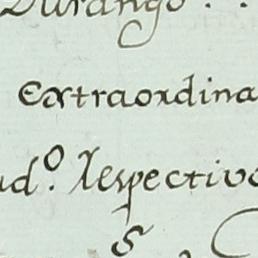 Durango . .
Extraordina
ud.º Respective